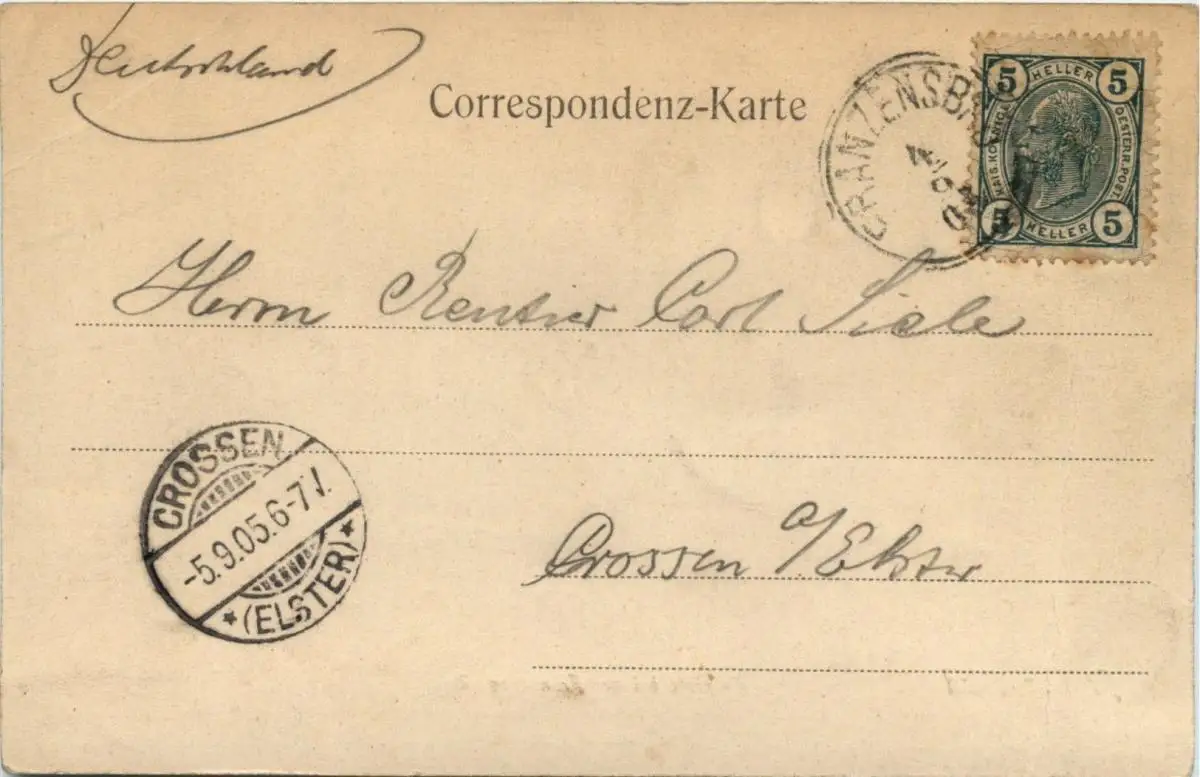 Deutschland
Correspondenz-Karte
FRANZENSBA
5 HELLER 5
KAIS. KÖNIGL. OESTERR. POST.
5 HELLER 5
Herrn Rentier Carl Siele
CROSSEN
-5.9.05.6-7V.
* (ELSTER) *
Crossen a/Elster